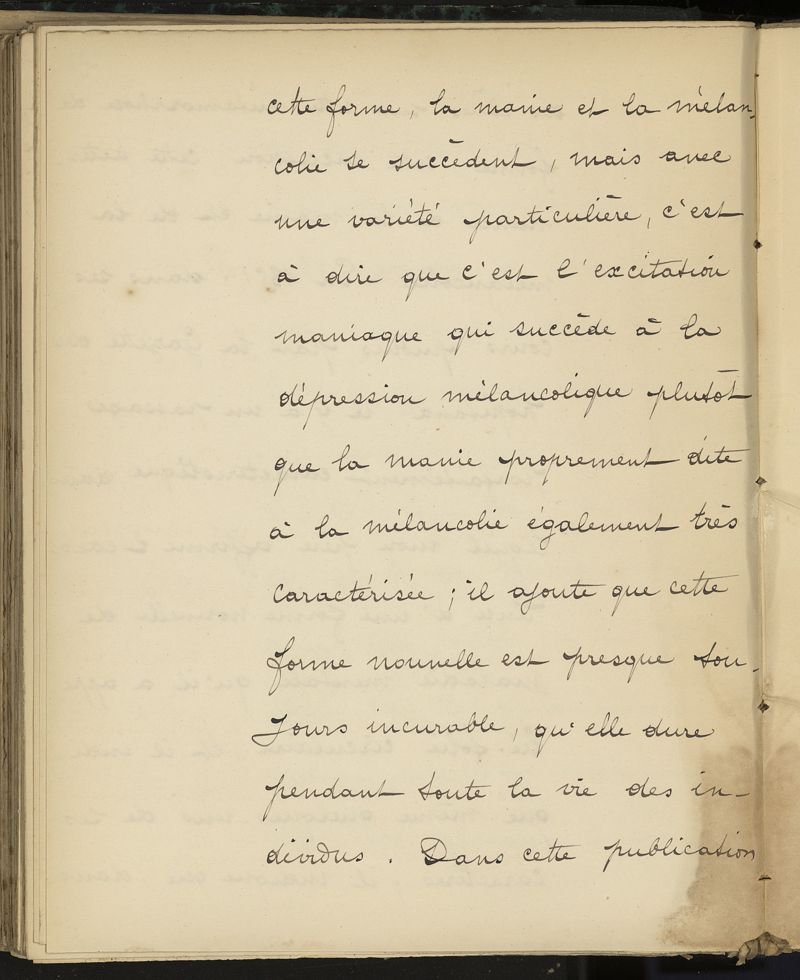 cette forme, la manie et la mélan-
colie se succèdent, mais avec
une variété particulière, c'est
à dire que c'est l'excitation
maniaque qui succède à la
dépression mélancolique plutôt
que la manie proprement dite
à la mélancolie également très
caractérisée ; il ajoute que cette
forme nouvelle est presque tou-
jours incurable, qu'elle dure
pendant toute la vie des in-
dividus. Dans cette publication